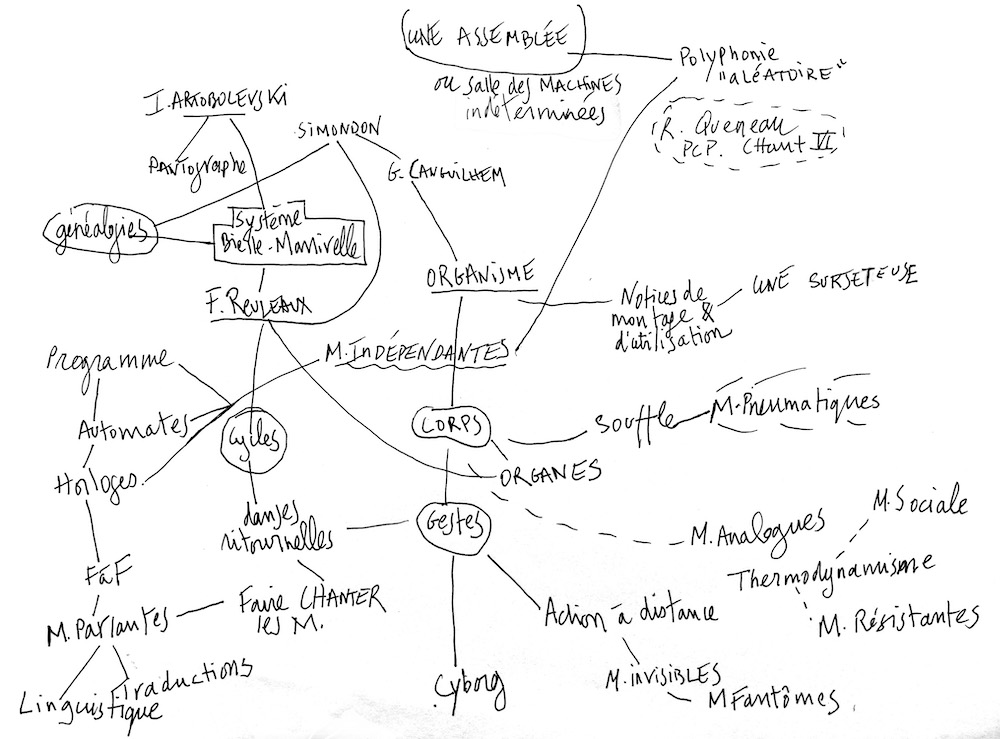 UNE ASSEMBLÉE
ou salle des MACHINES
indéterminées
Polyphonie
"ALÉATOIRE"
R. Queneau
PCP. CHant VI
I. ARTOBOLEVSKI
Pantographe
SIMONDON
G. CANGUILHEM
généalogies
Système
Bielle-Manivelle
F. REULEAUX
ORGANISME
Notices de
montage &
d'utilisation
UNE SURJETEUSE
M. INDÉPENDANTES
Programme
Automates
Horloges.
Cycles
CORPS
Souffle
M. Pneumatiques
ORGANES
danses
ritournelles
Gestes
M. Analogues
M. Sociale
Thermodynamisme
M. Résistantes
FàF
M. Parlantes
Faire CHANTER
les M.
Linguistique
Traductions
Action à distance
M. invisibles
M Fantômes.
Cyborg